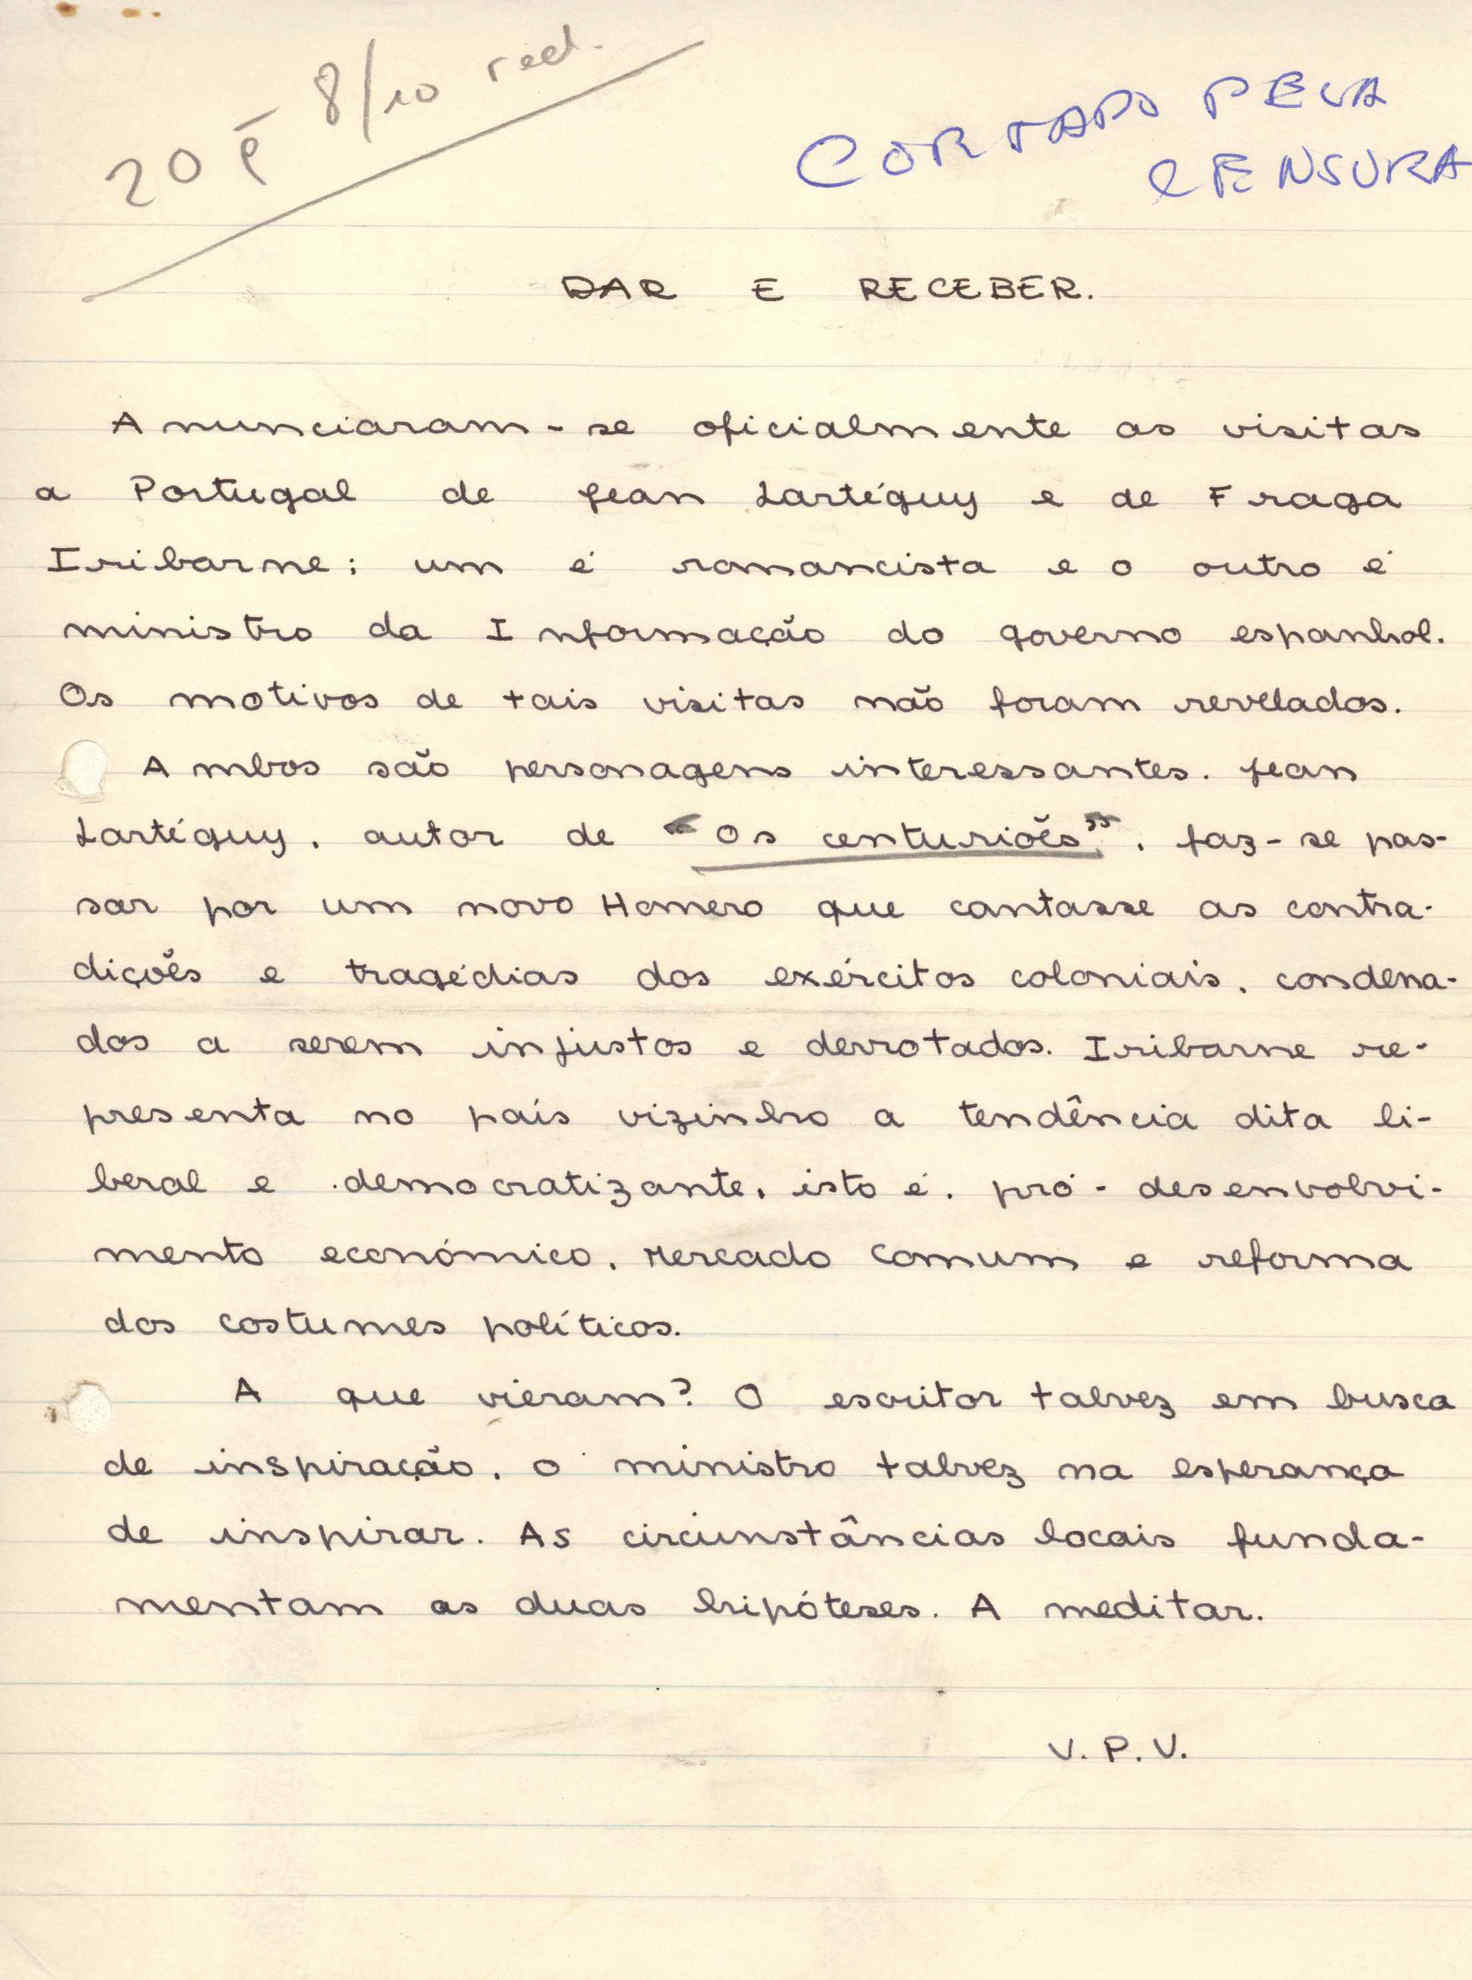 20 p̄ 8/10 red.
CORTADO PELA
CENSURA
DAR E RECEBER.
Anunciaram-se oficialmente as visitas
a Portugal de Jean Lartéguy e de Fraga
Iribarne: um é romancista e o outro é
ministro da Informação do governo espanhol.
Os motivos de tais visitas não foram revelados.
Ambos são personagens interessantes. Jean
Lartéguy, autor de "Os centuriões", faz-se pas-
sar por um novo Homero que cantasse as contra-
dições e tragédias dos exércitos coloniais, condena-
dos a serem injustos e derrotados. Iribarne re-
presenta no país vizinho a tendência dita li-
beral e democratizante, isto é, pró-desenvolvi-
mento económico, Mercado Comum e reforma
dos costumes políticos.
A que vieram? O escritor talvez em busca
de inspiração, o ministro talvez na esperança
de inspirar. As circunstâncias locais funda-
mentam as duas hipóteses. A meditar.
V.P.V.